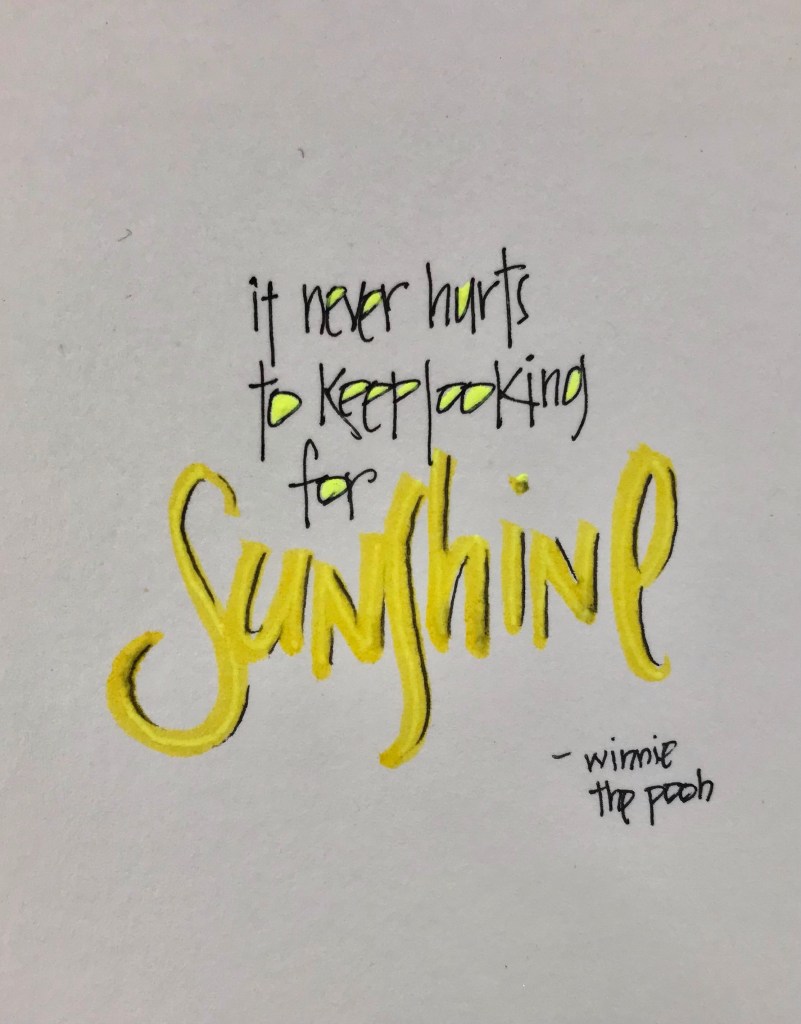 it never hurts
to keep looking
for
Sunshine
- winnie
the pooh